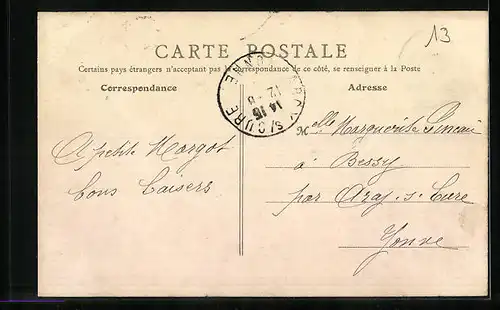 13
CARTE POSTALE
Certains pays étrangers n'acceptant pas la correspondance de ce côté, se renseigner à la Poste
Correspondance
Adresse
A petite Margot
bons baisers
Melle Marguerite
à Bessy
par Arcy-s-Cure
Yonne
S/CURE